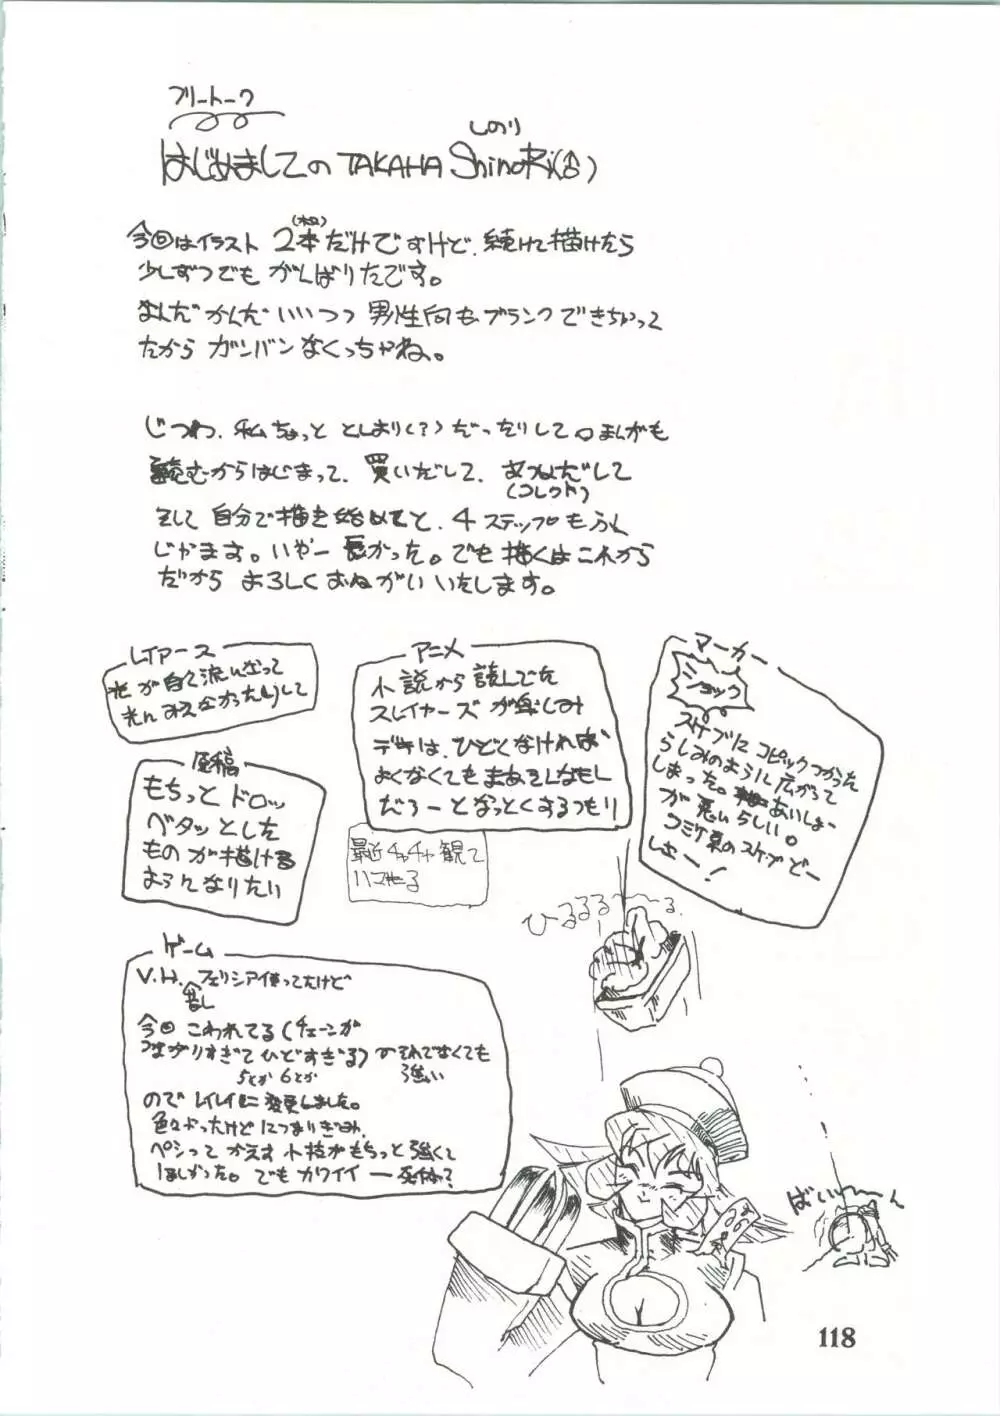 フリートーク
しのり
はじめましての TAKAHA ShinoRi(含)
(枚)
今回はイラスト 2本だけですけど、続けて描けたら
少しずつでも がんばりたです。
なんだ かんだ いいつつ 男性向も ブランク できちゃって
だから ガンバン なくっちゃね。
じつわ、私ちょっと としより(?) だったりして。まんがも
読むからはじまって、買いだして、あつめだして
(コレクト)
そして 自分で描き始めてと、4ステップもふん
じゃます。いやー 長かった。でも 描くは これから
だから よろしく おねがい いたします。
レイアース
光が白く流になって
光 みえなかったりして
アニメ
小説から 読んでた
スレイヤーズ が楽しみ
デキは、ひどくなければ
よくなくても まあそんなもん
だろーと なっとくするつもり
最近チャチャ観て
ハマる
マーカー
ショック
スケブに コピック つかったら
しみのように 広がって
しまった。 あいしょー
が 悪いらしい。
コミケ 夏のスケブ どー
しよー!
原稿
もちっと ドロッ
ベタッ とした
もの が描ける
ようになりたい
ひるるる〜る
ゲーム
V.H. フェリシア使ってたけど
昔し
今回 こわれてる (チェーンが
つながりすぎて ひどすぎる) のそれでなくても
5とか 6とか 強い
ので レイレイに 変更しました。
色々やったけど につまりぎみ、
ペシって かえす 小技が もちっと 強くて
ほしかった。でも カワイイ ー 死体?
ばい〜〜ん
118